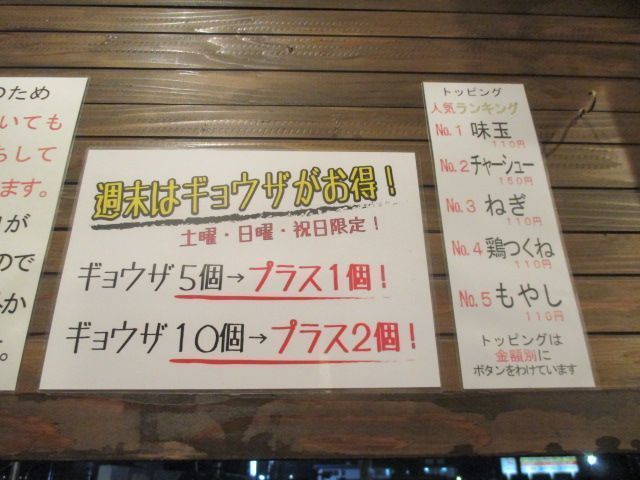 のため
いても
ちして
ます。
が
ので
か
。
週末はギョウザがお得！
土曜・日曜・祝日限定！
ギョウザ5個→プラス1個！
ギョウザ10個→プラス2個！
トッピング
人気ランキング
No.1 味玉
110円
No.2 チャーシュー
150円
No.3 ねぎ
110円
No.4 鶏つくね
110円
No.5 もやし
110円
トッピングは
金額別に
ボタンをわけています